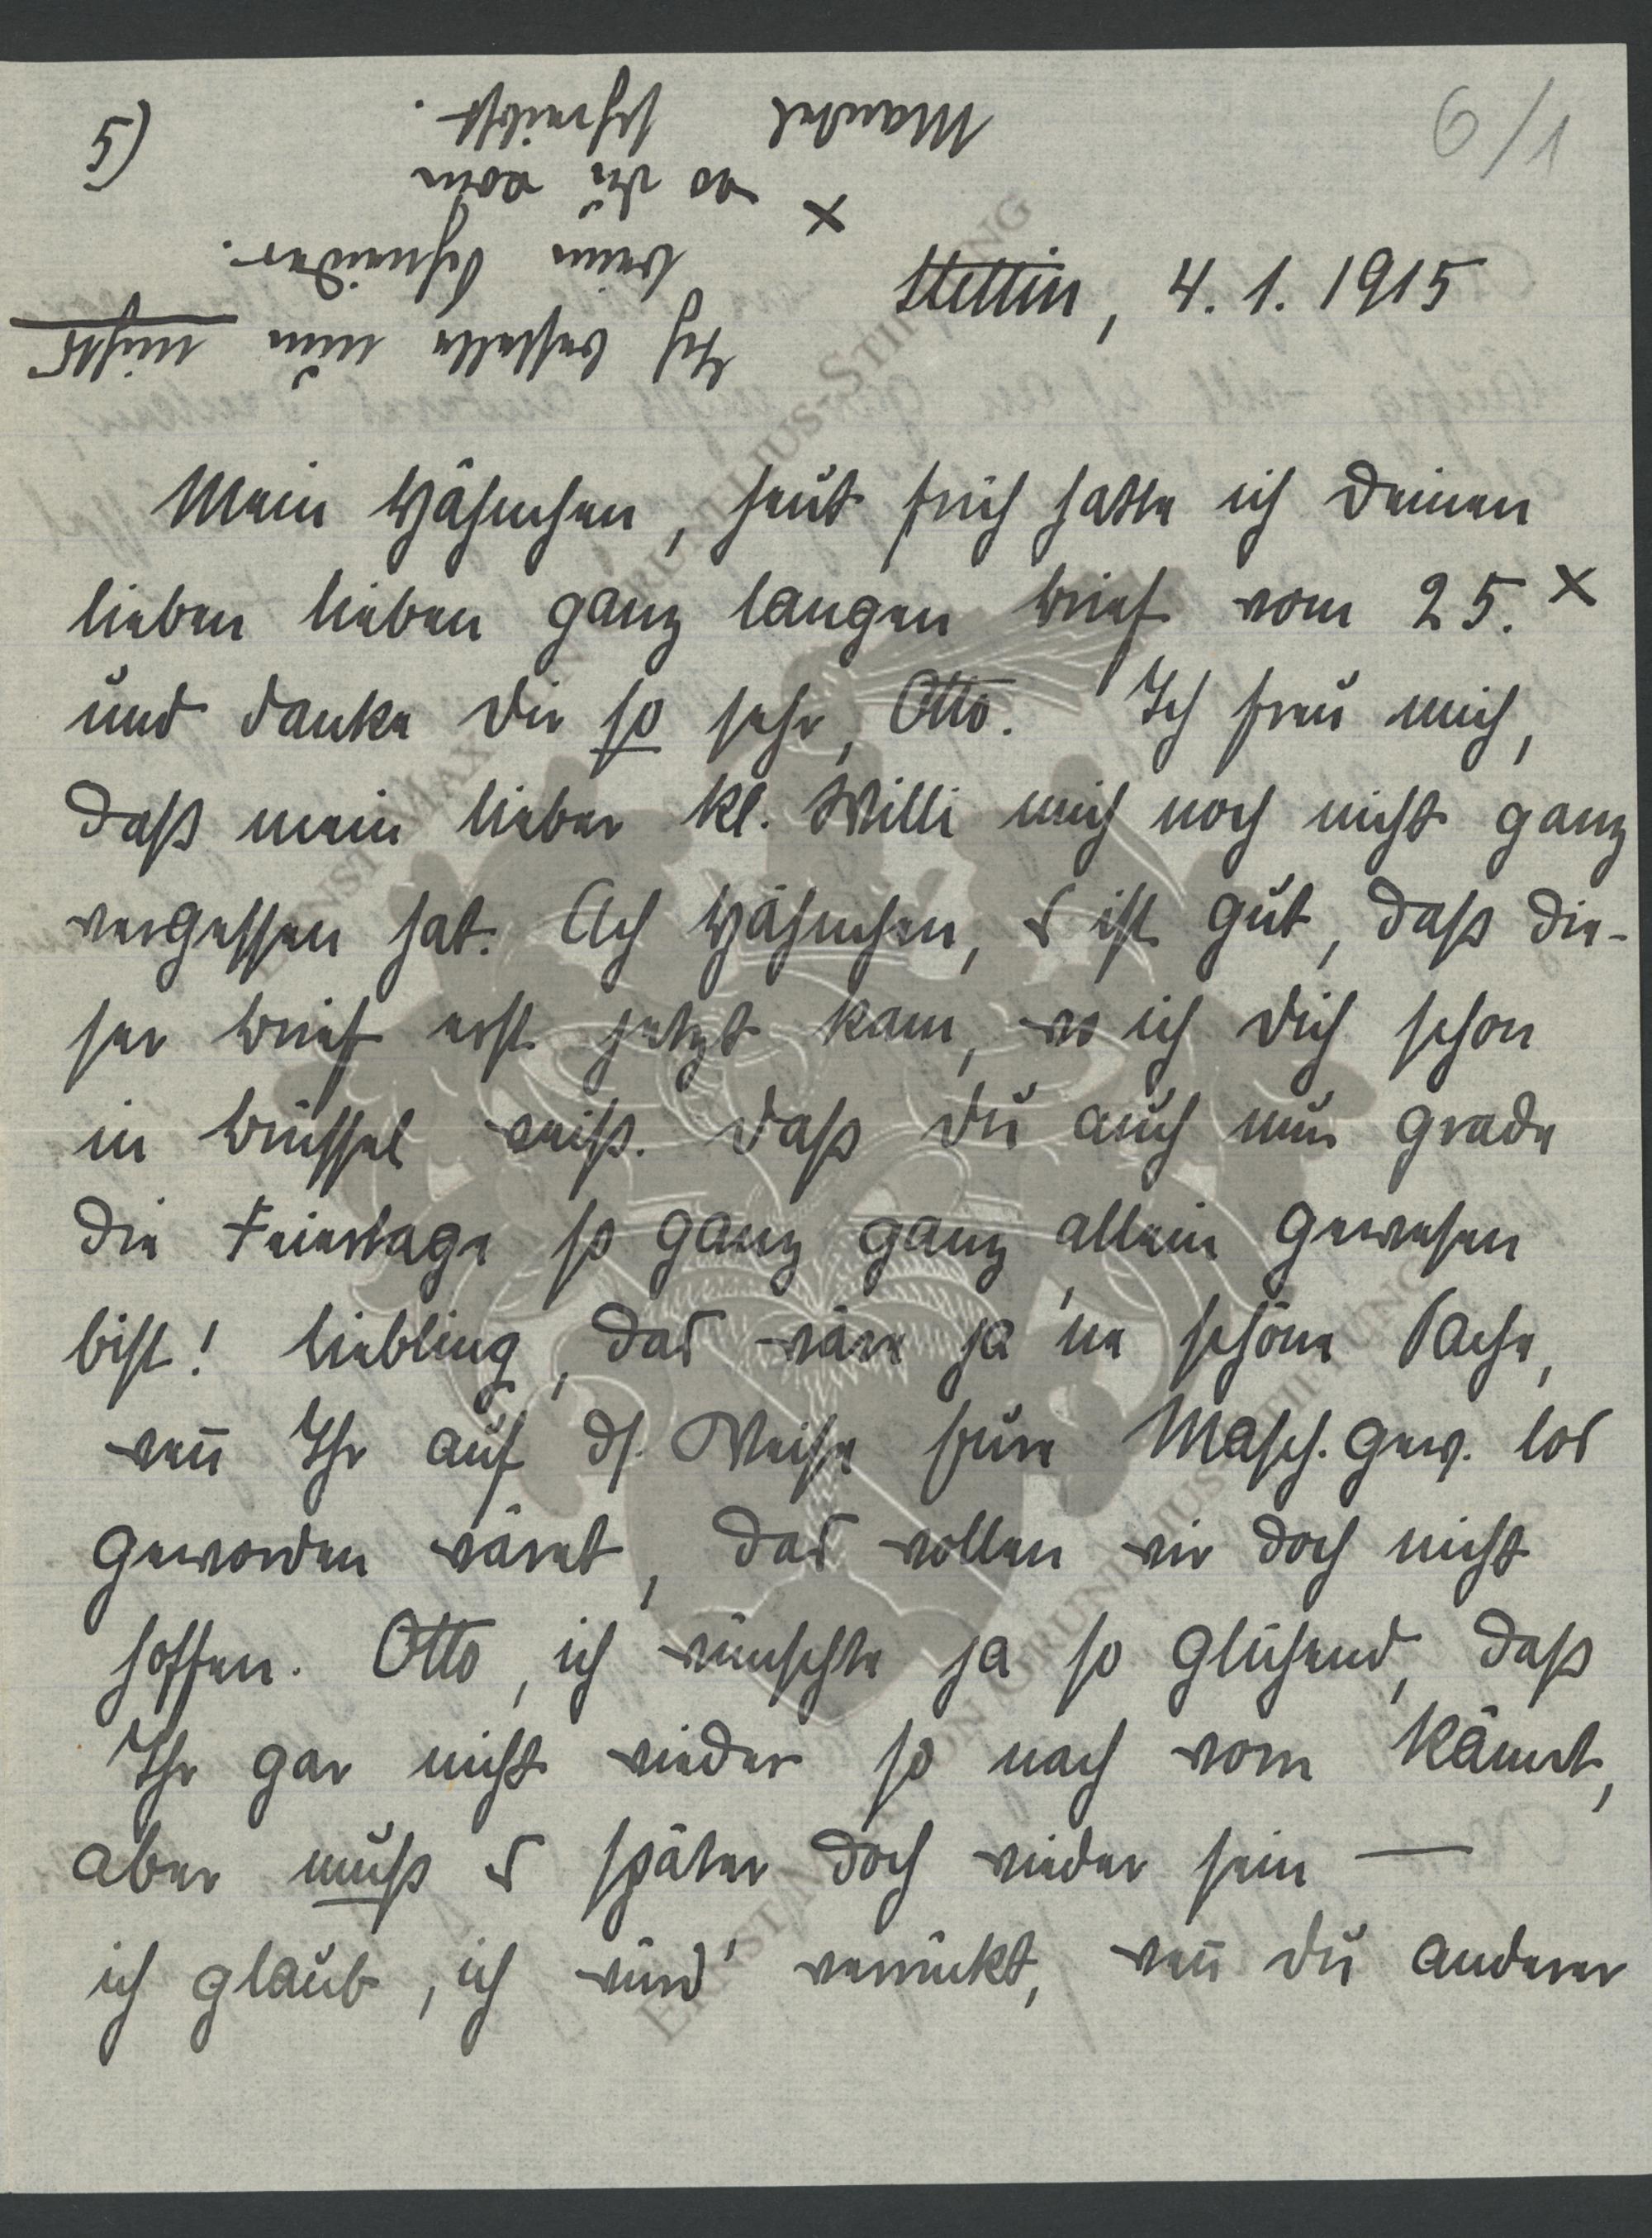 6/1
5)
Ich bestelle nun nicht
beim Schneider.
x wo Du vom
Mantel schreibst.
Stettin, 4. 1. 1915
Mein Hähnchen, heut früh hatte ich Deinen
lieben lieben ganz langen Brief vom 25. x
und danke Dir so sehr, Otto. Ich freu mich,
daß mein lieber kl. Willi mich noch nicht ganz
vergessen hat. Ach Hähnchen, s ist gut, daß die-
ser Brief erst jetzt kam, wo ich Dich schon
in Brüssel weiß. Daß Du auch nun grade
die Feiertage so ganz ganz allein gewesen
bist! Liebling, das wäre ja 'ne schöne Sache,
wen̄ Ihr auf ds. Weise Eure Masch. gew. los
geworden wäret, das wollen wir doch nicht
hoffen. Otto, ich wünschte ja so glühend, daß
Ihr gar nicht wieder so nach vorn kämt,
aber muß s später doch wieder sein —
ich glaub, ich würd' verrückt, wen̄ Du anderer
ERNST MAX VON GRUNELIUS-STIFTUNG
ERNST MAX VON GRUNELIUS-STIFTUNG